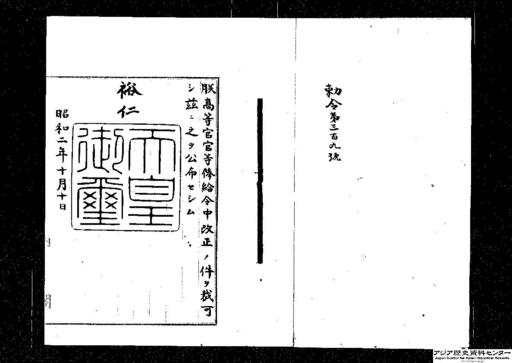 勅令第三百九號
朕高等官官等俸給令中改正ノ件ヲ裁可
シ茲ニ之ヲ公布セシム
裕仁
天皇
御璽
昭和二年十月十日
アジア歴史資料センター
Japan Center for Asian Historical Records